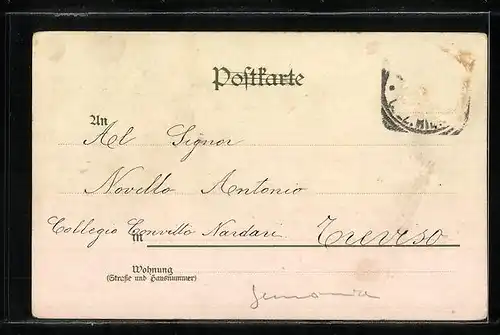 Postkarte
An
Al Signor
Novello Antonio
Collegio Convitto Nardari
in Treviso
Wohnung
(Straße und Hausnummer)